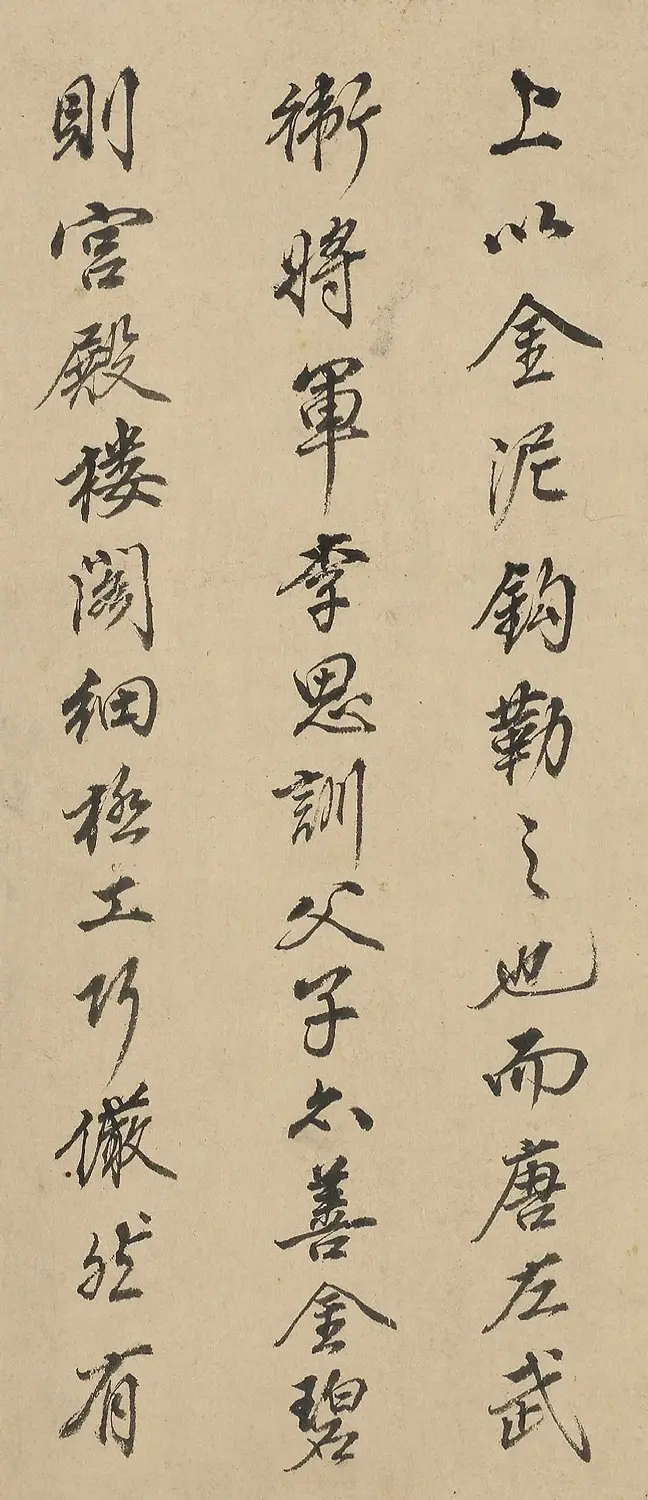 上以金泥鈎勒之也而唐左武
衛將軍李思訓父子亦善金碧
則宮殿樓閣細極工巧儼然有